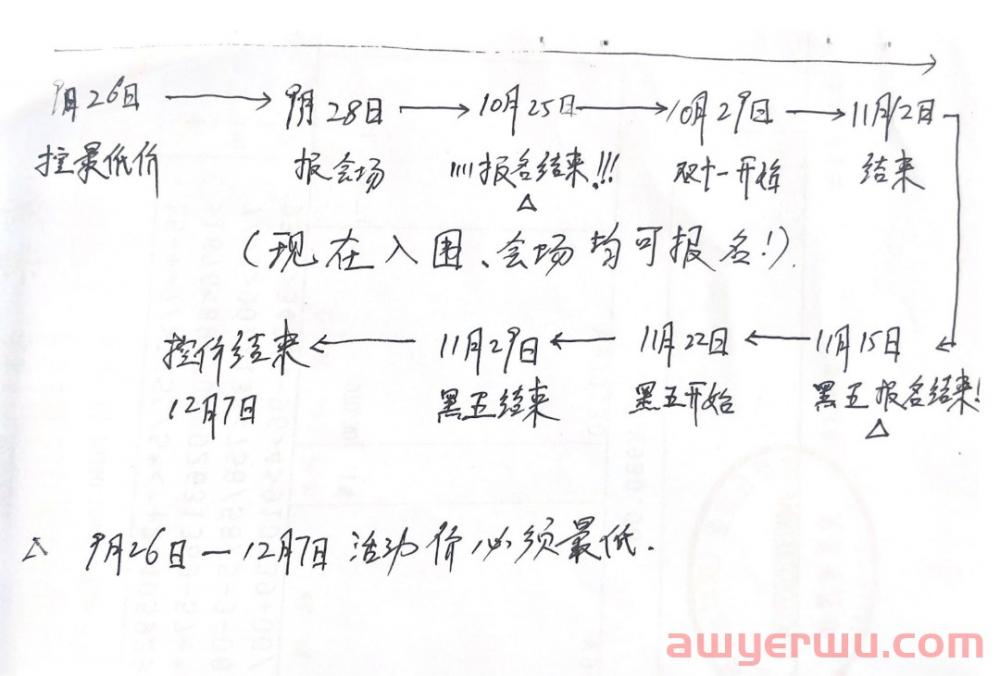 9月26日 → 9月28日 → 10月25日 → 10月29日 → 11月12日
控最低价 报会场 !!!!报名结束!!! 双十一开始 结束
△
(现在入围、会场均可报名!)
控价结束 ← 11月29日 ← 11月22日 ← 11月15日 ←
12月7日 黑五结束 黑五开始 黑五报名结束!
△
△ 9月26日一12月7日 活动价必须最低.
awyerwu.com